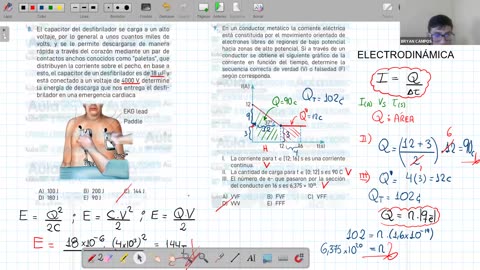 8. El capacitor del desfibrilador se carga a un alto
voltaje, por lo general a unos cuantos miles de
volts, y se le permite descargarse de manera
rápida a través del corazón mediante un par de
contactos anchos conocidos como "paletas", que
distribuyen la corriente sobre el pecho; en base a
esto, el capacitor de un desfibrilador es de 18 μF y
esta conectado a un voltaje de 4000 V, determine
la energía de descarga que nos entrego el desfi-
brilador en una emergencia cardíaca
EKG lead
Paddle
A) 100 J B) 200 J C) 144 J
D) 180 J E) 90 J
E = Q²/2C ; E = C.V²/2 ; E = QV/2
E = 18×10⁻⁶ (4×10³)²/2 = 144 J
En un conductor metálico la corriente eléctrica
está constituida por el movimiento orientado de
electrones libres de regiones de bajo potencial
hacia zonas de alto potencial. Si a través de un
conductor se obtiene el siguiente gráfico de la
corriente en función del tiempo, determine la
secuencia correcta de verdad (V) o falsedad (F)
según corresponda.
I(A)
Q=90c
QT=102c
Q=12c
12
9
3
12
4
H
I. La corriente para t ∈ [12; 16] s es una corriente
continua. V
II. La cantidad de carga para t ∈ [0; 12] s es 90 C V
III. El número de e⁻ que pasaron por la sección
del conductor en 16 s es 6,375 × 10²⁰. V
A) VVF B) VFF C) VFV
D) VVV E) FFF
BRYAN CAMPOS
ELECTRODINÁMICA
I = Q/Δt
I(A) VS t(s)
Q = ÁREA
II) Q = (12+3/2).12 = 90c
6
III) Q" = 4(3) = 12c
QT = 102c
Q = n.|qe|
102 = n.(1,6×10⁻¹⁹)
6,375×10²⁰ = n